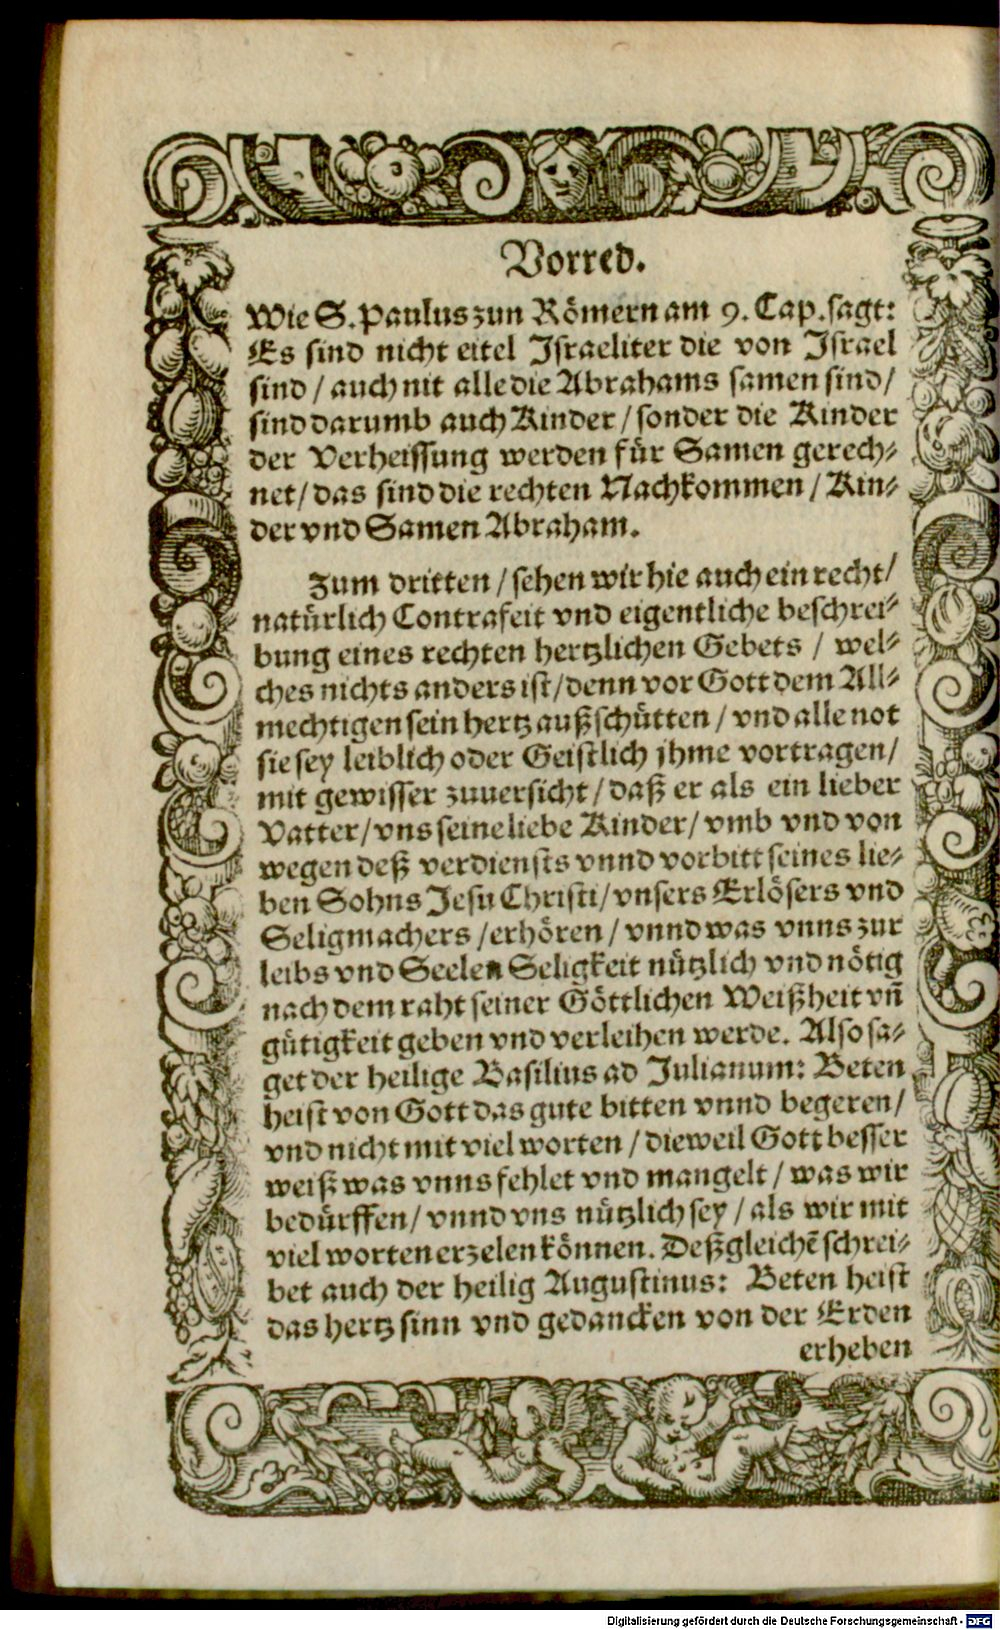 Vorred.
Wie S. Paulus zun Römern am 9. Cap. sagt:
Es sind nicht eitel Israeliter die von Israel
sind / auch nit alle die Abrahams samen sind /
sind darumb auch Kinder / sonder die Kinder
der Verheissung werden für Samen gerech-
net / das sind die rechten Nachkommen / Kin-
der vnd Samen Abraham.
Zum dritten / sehen wir hie auch ein recht /
natürlich Contrafeit vnd eigentliche beschrei-
bung eines rechten hertzlichen Gebets / wel-
ches nichts anders ist / denn vor Gott dem All-
mechtigen sein hertz außschütten / vnd alle not
sie sey leiblich oder Geistlich jhme vortragen /
mit gewisser zuuersicht / daß er als ein lieber
Vatter / vns seine liebe Kinder / vmb vnd von
wegen deß verdiensts vnnd vorbitt seines lie-
ben Sohns Jesu Christi / vnsers Erlösers vnd
Seligmachers / erhören / vnnd was vnns zur
leibs vnd Seelen Seligkeit nützlich vnd nötig
nach dem raht seiner Göttlichen Weißheit vñ
gütigkeit geben vnd verleihen werde. Also sa-
get der heilige Basilius ad Julianum: Beten
heist von Gott das gute bitten vnnd begeren /
vnd nicht mit viel worten / dieweil Gott besser
weiß was vnns fehlet vnd mangelt / was wir
bedürffen / vnnd vns nützlich sey / als wir mit
viel worten erzelen können. Deßgleichẽ schrei-
bet auch der heilig Augustinus: Beten heist
das hertz sinn vnd gedancken von der Erden
erheben
Digitalisierung gefördert durch die Deutsche Forschungsgemeinschaft - DFG